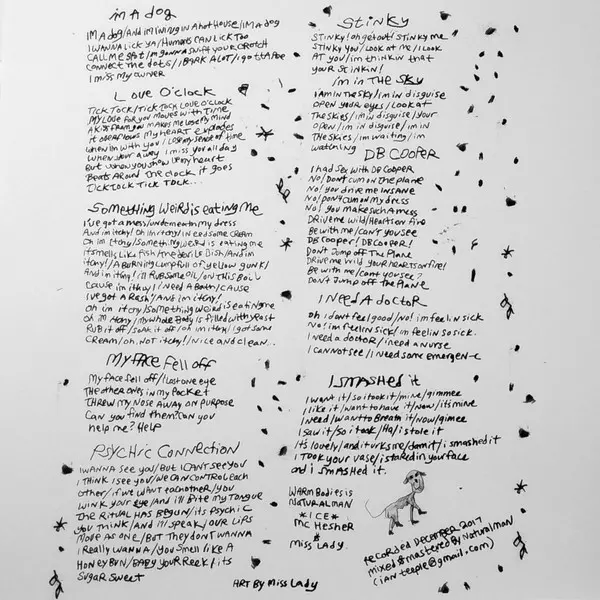 im A dog
im A dog/And im living in A hot House/im A dog
I WANNA Lick ya/Humans CAN Lick Too
CALL ME spot/im gonna sniff your crotch
connect The dots/i BARK A LOT/i gotta Pee
I miss my owner
Love O'clock
Tick Tock/Tick Tock Love O'clock
My Love for you moves with Time
A Kiss from you makes me Lose my mind
It's obvious my heart explodes
when im with you I lose my sense of time
when your away I miss you all day
But when you show up my heart
Beats Around The clock it goes
Tick Tock Tick Tock...
Something Weird is eating Me
I've got a mess/underneath my dress
And im itchy/oh im itchy/i need some cream
oh im itchy/something weird is eating me
It smells Like fish/the devils Dish/And im
itchy/A Burning Lump full of yellow gunk/
And im itchy/i'll Rub some oil/on This Boil
Cause im itchy/I need A Bath/cause
i've got a Rash/And im itchy!
oh im itchy/something weird is eating me
oh im itchy/my whole Body is filled with yeast
Rub it off/soak it off/oh im itchy/i got some
cream/oh, Not itchy!/Nice and clean..
My Face Fell off
My face fell off/I Lost one eye
The other ones in my Pocket
Threw my Nose away on purpose
Can you find them? Can you
help me? Help
Psychic Connection
I wanna see you/But I CANT see you
I Think I see you/we CAN Control each
other/if we want each other/you
wink your eye and I'll Bite my Tongue
The Ritual has Begun/its Psychic
you Think/And i'll speak/our Lips
Move as one/But They dont wanna
I Really wanna/you smell like A
Honey Bun/Baby your Reek/its
Sugar sweet
Stinky
Stinky! oh get out! Stinky me
Stinky you/Look at me/I Look
AT you/im thinkin that
your Stinkin!
I'm in The Sky
i Am in The sky/im in disguise
open your eyes/Look at
The skies/im in disguise/your
open/im in disguise/im in
The skies/im waiting/im
watching
DB Cooper
I had Sex with DB Cooper
No! Dont cum on the plane
No! you drive me insane
No! Dont cum on my dress
No! you make such a mess
Drive me wild/Hearts on fire
Be with me/cant you see
DB Cooper! DB Cooper!
Dont Jump off the Plane
Drive me wild your hearts on fire!
Be with me/cant you see?
Dont Jump off the Plane
I Need A doctor
oh i dont feel good/No! im feelin sick
No! im feelin sick! im feelin so sick.
I need a doctor/i need a nurse
I cannot see/I need some emergen-c
I Smashed it
I want it/so i took it/mine/gimmee
I like it/want to have it/Now/its mine
I need/want to Breath it/Now/gimee
I saw it/so i took/Ha/i stole it
It's lovely/and it urks me/damit/i smashed it
I took your vase/i stared in your face
and i smashed it.
Warm Bodies is
Naturalman
*ICE*
MC Hesher
*
Miss Lady
recorded December 2017
mixed & mastered By Naturalman
(ian.teeple@gmail.com)
ART By Miss Lady